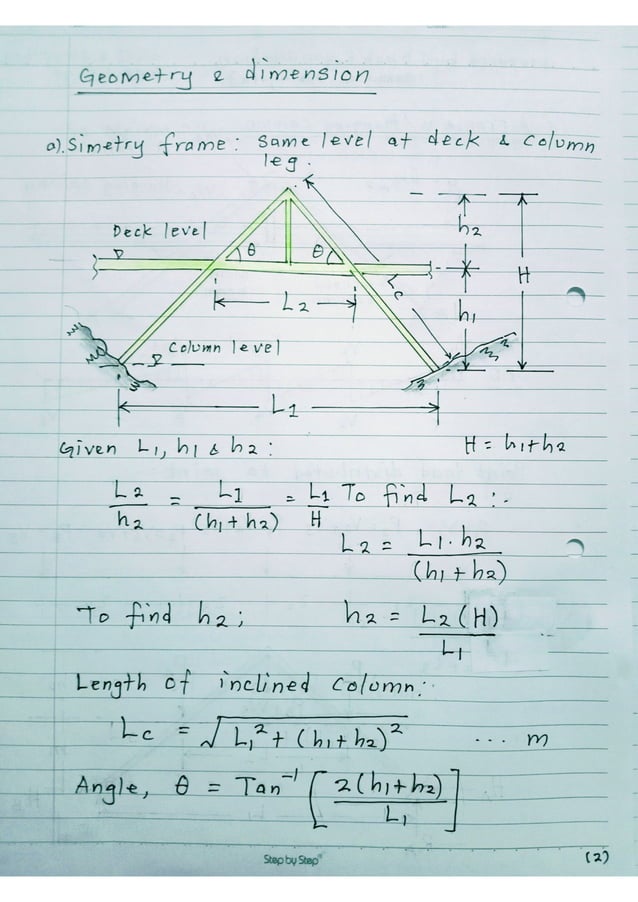 Geometry & dimension
a). Simetry frame: Same level at deck & column
leg.
Deck level
θ θ
h2
H
Lc
L2
h1
Column level
L1
Given L1, h1 & h2 :
H = h1+h2
L2/h2 = L1/(h1+h2) = L1/H To find L2 :-
L2 = L1.h2/(h1+h2)
To find h2; h2 = L2(H)/L1
Length of inclined column:-
Lc = √L1²+(h1+h2)² ... m
Angle, θ = Tan⁻¹ [2(h1+h2)/L1]
Step by Step
(2)